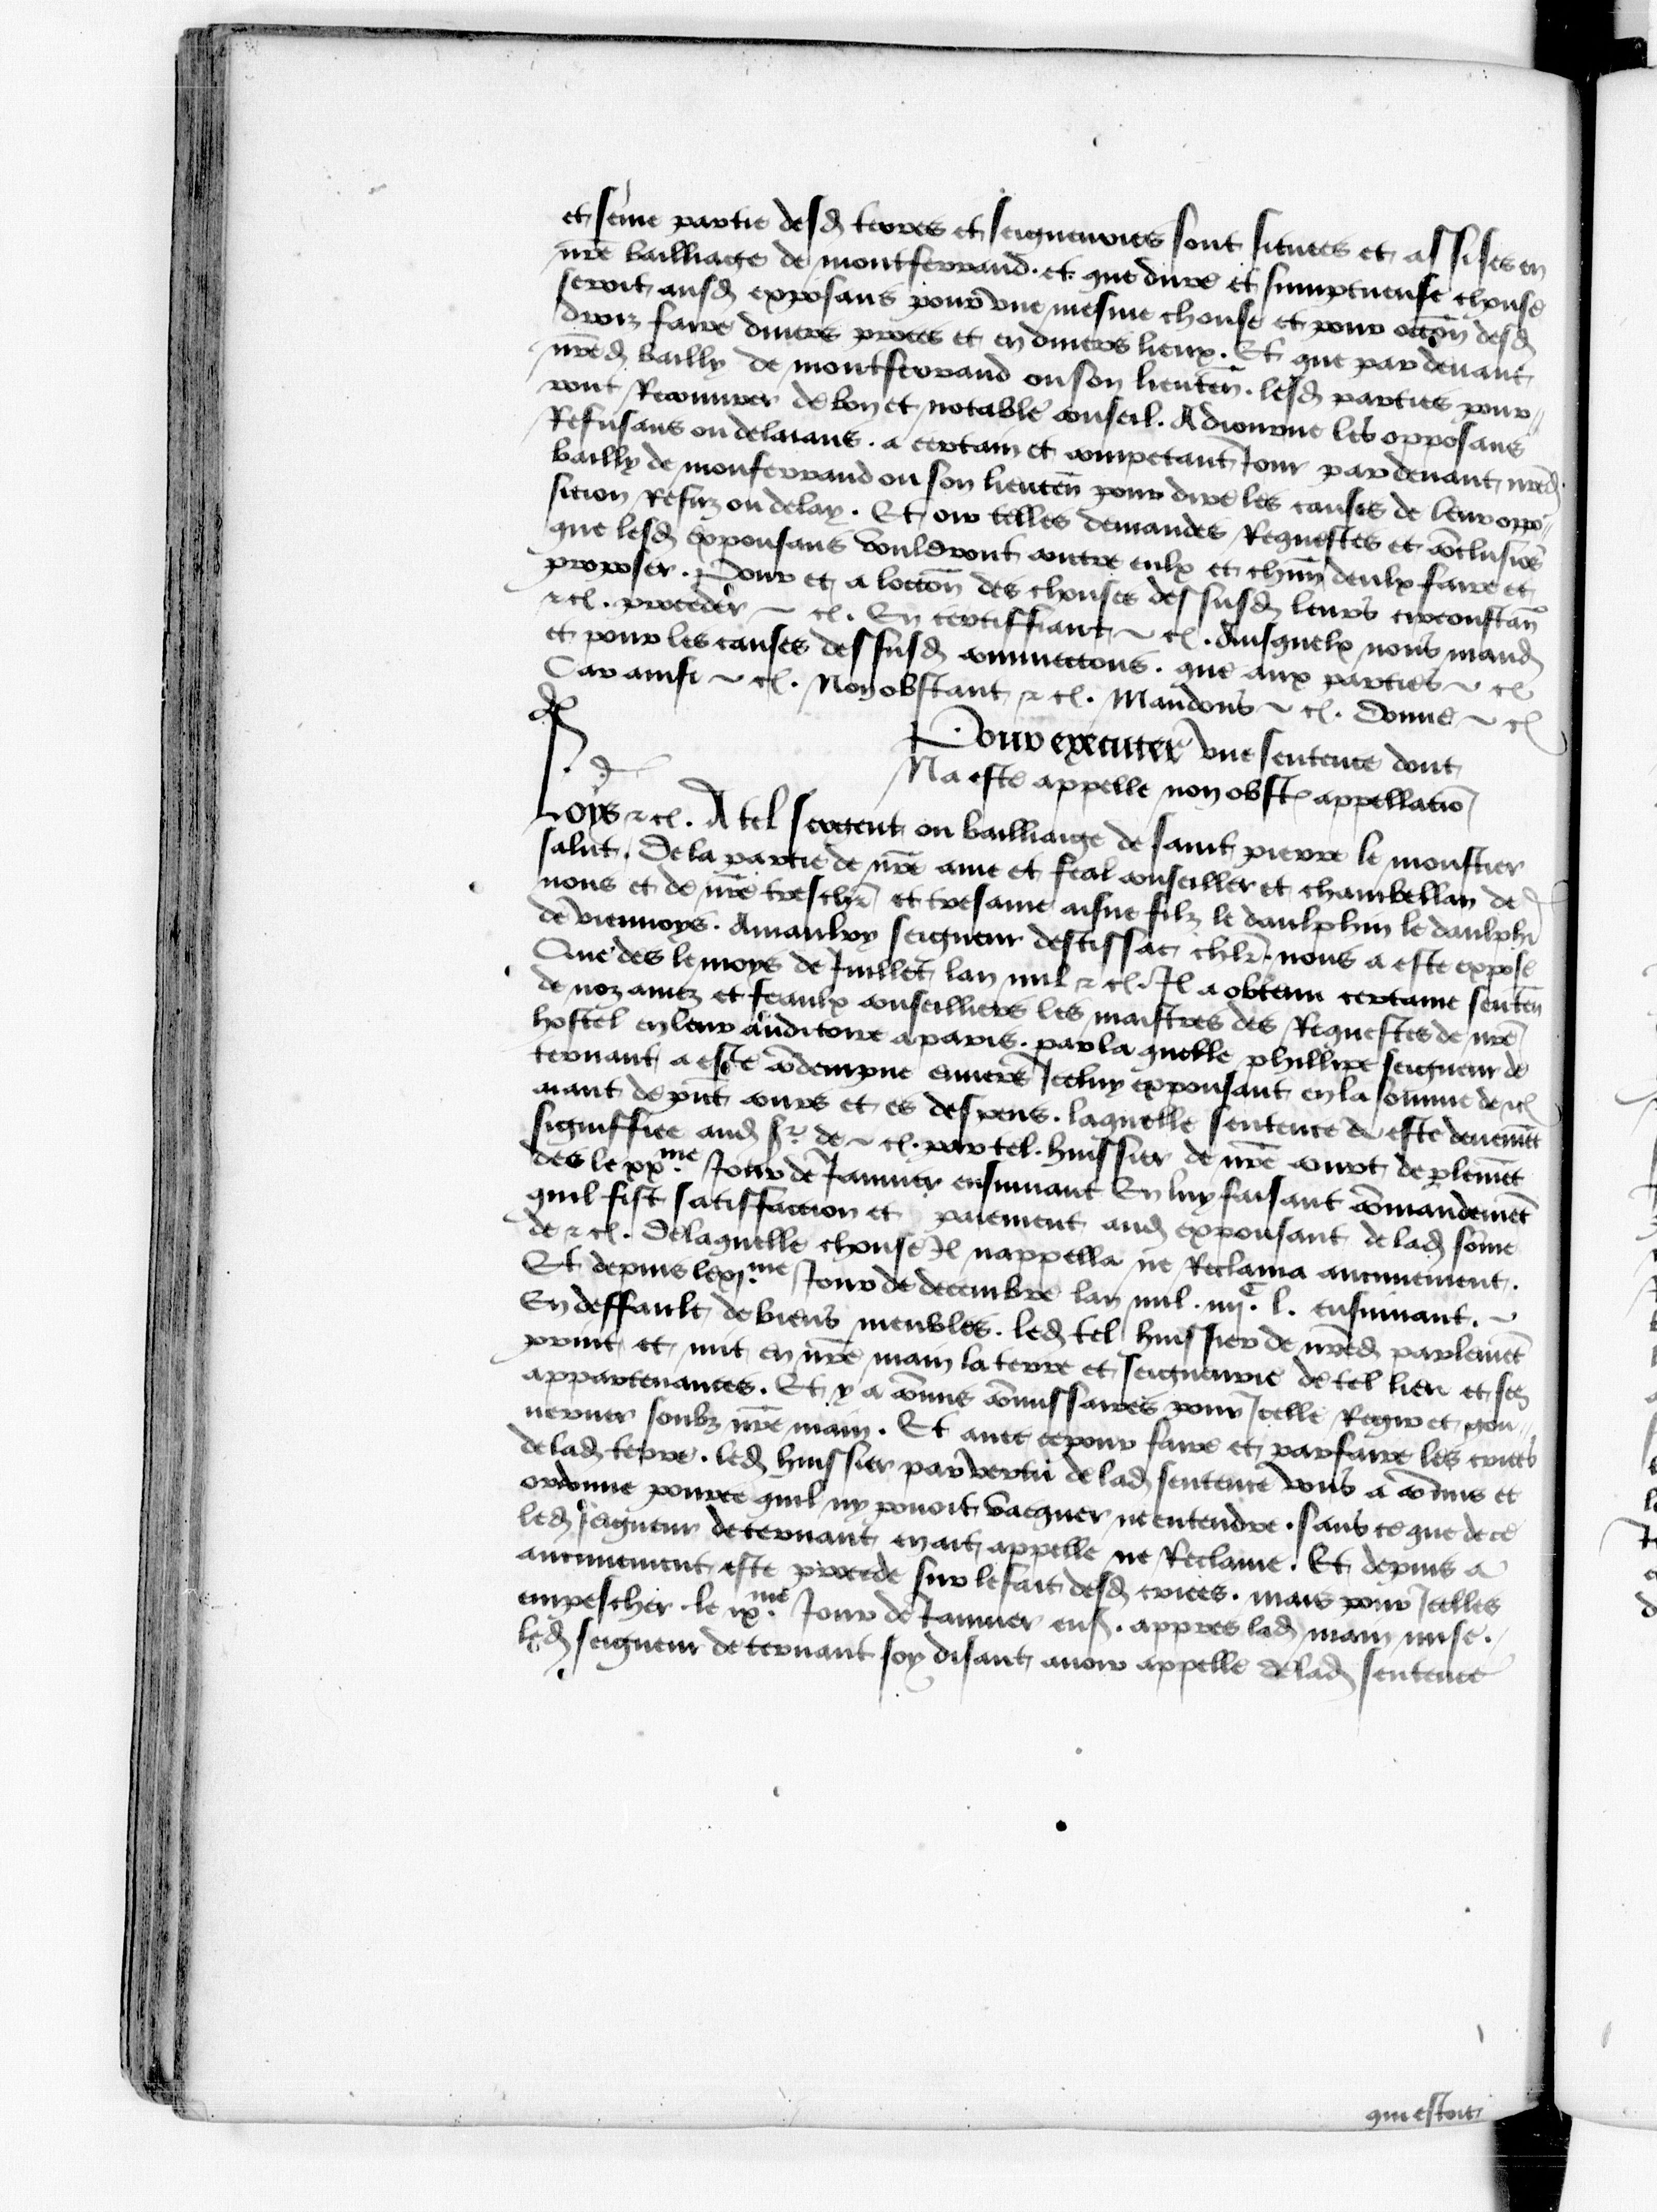 et seme partie desd terres et seigneuries sont situees et assises en
nre bailliage de montferrand. et que dure et sumptueuse chouse
seroit ausd exposans pour une mesme chouse et pour occon desd
droiz faire divers proces et en divers lieux. Et que par devant
nred bailly de montferrand ou son lieuten. lesd parties pour-
ront Recouvrer de bon et notable conseil. Adiourne les opposans
Refusans ou delaians. a certain et competant Jour par devant nred
bailly de monferrand ou son lieuten pour dire les causes de leur oppo-
sition Refuz ou delay. Et oir telles demandes Requestes et conclusions
que lesd expousans vouldront contre eulx et chun deulx faire et
proposer. Pour et a loccon des chouses dessusd leurs circonstan
& cl. proceder & cl. En certiffiant & cl. Ausquelx nous mand
et pour les causes dessusd commectons. que aux parties & cl
Car ainsi & cl. Non obstant & cl. Mandons & cl. Donne & cl
Pour executer une sentence dont
Na este appelle non obst appellacio
Loys & cl. A tel sergent ou bailliaige de saint pierre le moustier
salut. De la partie de nre ame et feal conseiller et chambellan de
nous et de nre treschr et tresame aisne filz le daulphin le daulphi
de viennoys. Amaulry seigneur destissac chlr. nous a este expose
Que des le moys de Juillet lan mil & cl. Il a obtenu certaine senten
de noz amez et feaulx conseilliers les maistres des Requestes de nre
hostel en leur auditoire a paris. par la quelle phillipe seigneur de
ternant a este condempne envers Icelluy expousant en la somme de & cl
aiant de pnt cours et es despens. laquelle sentence a este deuemet
signiffiee aud sr de & cl. par tel. huissier de nre court de plement
des le xx.me Jour de Janvier ensuivant En luy faisant commandement
quil fist satisfaction et paiement aud expousant de lad some
de & cl. De laquelle chouse Il nappella ne Reclama aucunement.
Et depuis le xj.me Jour de decembre lan mil. iiij.c l. ensuivant.
En deffault de biens meubles. led tel huissier de nred parlement
print et mit en nre main la terre et seigneurie de tel lieu et ses
appartenances. Et y a commis commissaires pour Icelle Regir et gou-
verner soubz nre main. Et avec ce pour faire et parfaire les criees
de lad terre. led huissier par vertu de lad sentence vous a commis et
ordonne pource quil ny pouoit vacquer ne entendre. sans ce que de ce
led seigneur de ternant en ait appelle ne Reclame. Et depuis a
aucunement este procede sur le fait desd criees. mais pour Icelles
empescher. le ix.me Jour de Janvier ens. appres lad main mise.
led seigneur de ternant soy disant avoir appelle de lad sentence
qui estoit